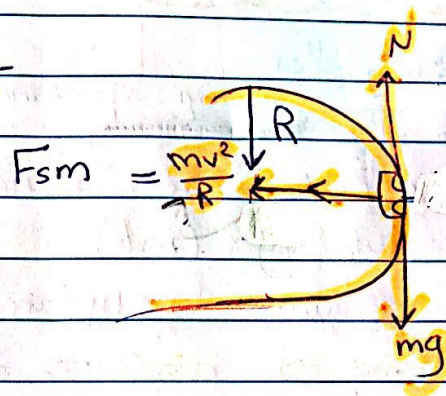 N
R
Fsm = mv²/R
mg